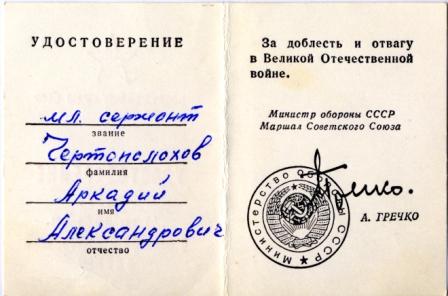 УДОСТОВЕРЕНИЕ
мл. сержант
звание
Чертополохов
фамилия
Аркадий
имя
Александрович
отчество
За доблесть и отвагу
в Великой Отечественной
войне.
Министр обороны СССР
Маршал Советского Союза
Министерство обороны СССР
А. ГРЕЧКО